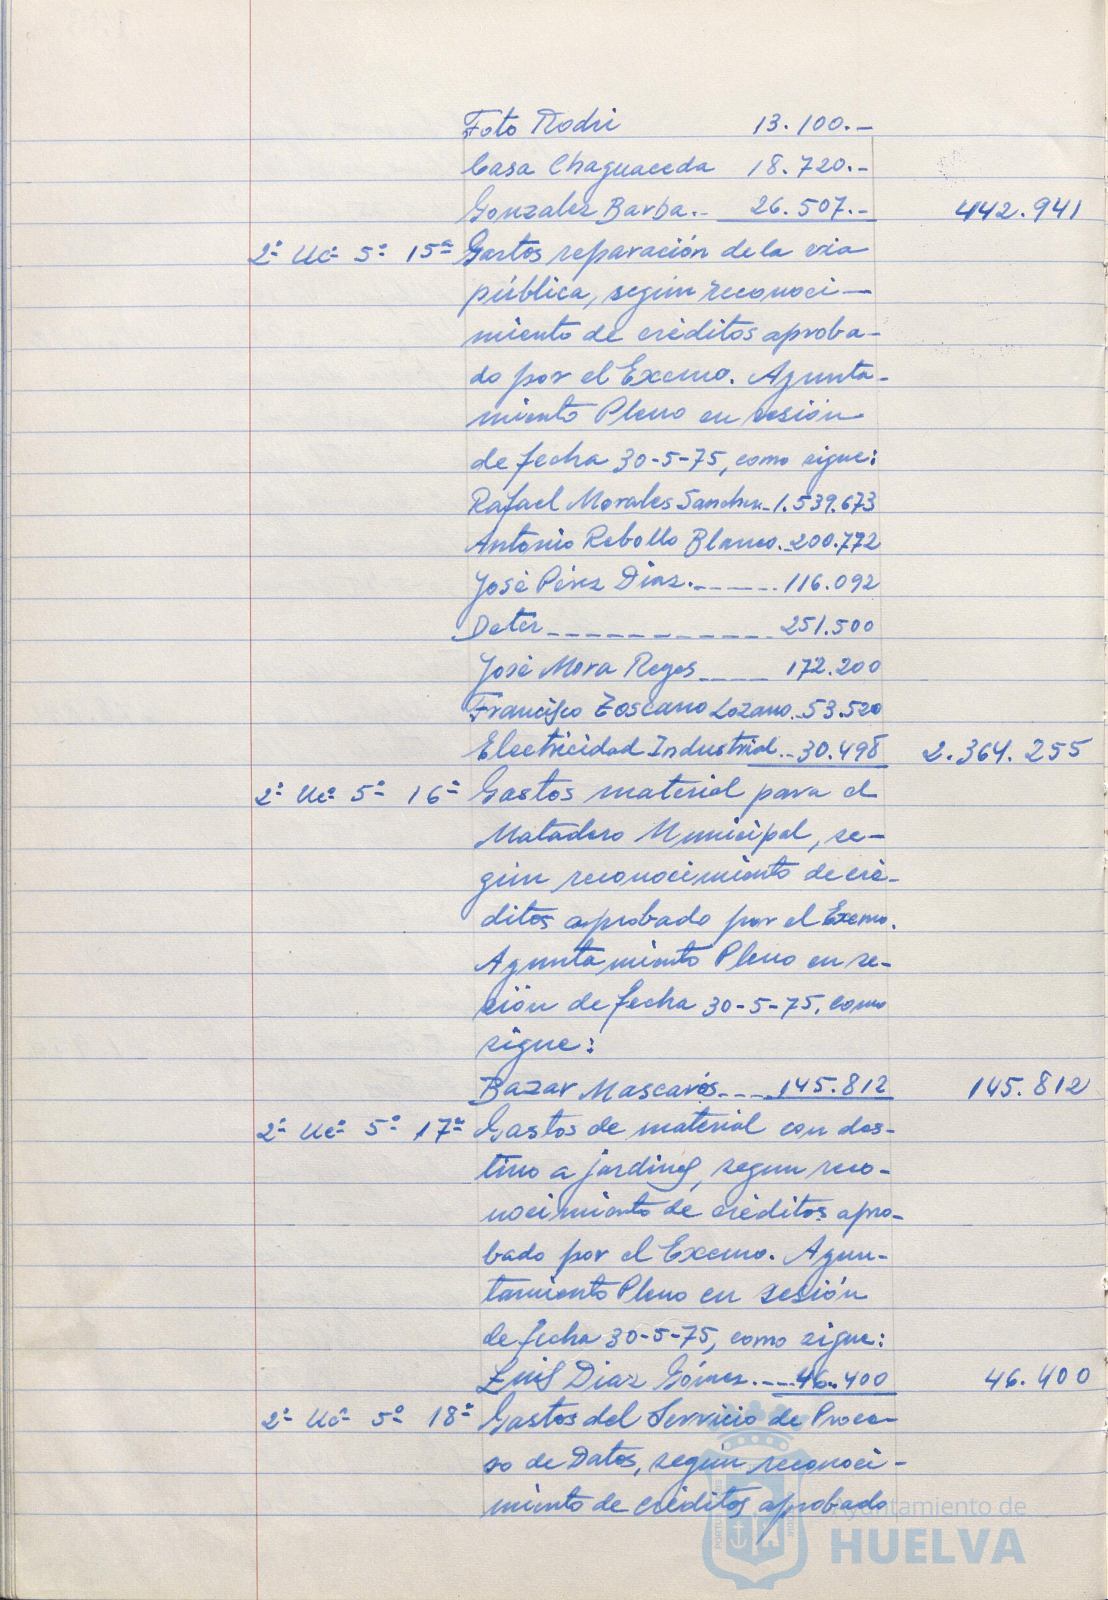 Foto Rodri 13.100.-
Casa Chaguaceda 18.720.-
Gonzalez Barba.- 26.507.- 442.941
2ª Uc- 5º 15ª Gastos reparación de la via
pública, según reconoci-
miento de créditos aproba-
do por el Excmo. Ayunta-
miento Pleno en sesión
de fecha 30-5-75, como sigue:
Rafael Morales Sanchez-1.539.673
Antonio Rebollo Blanco.-200.772
José Pérez Diaz.-----116.092
Deter------------251.500
José Mora Reyes---- 172.200
Francisco Toscano Lozano.-53.520
Electricidad Industrial.-30.498 2.364.255
2ª Ucº 5º 16ª Gastos material para el
Matadero Municipal, se-
gún reconocimiento de cré-
ditos aprobado por el Excmo.
Ayuntamiento Pleno en se-
sión de fecha 30-5-75, como
sigue:
Bazar Mascarós---145.812 145.812
2ª Ucº 5º 17ª Gastos de material con des-
tino a jardines, segun reco-
nocimiento de créditos apro-
bado por el Excmo. Ayun-
tamiento Pleno en sesión
de fecha 30-5-75, como sigue:
Luis Diaz Gómez.---46.400 46.400
2ª Ucº 5º 18ª Gastos del Servicio de Proce-
so de Datos, según reconoci-
miento de créditos aprobado
Ayuntamiento de
HUELVA